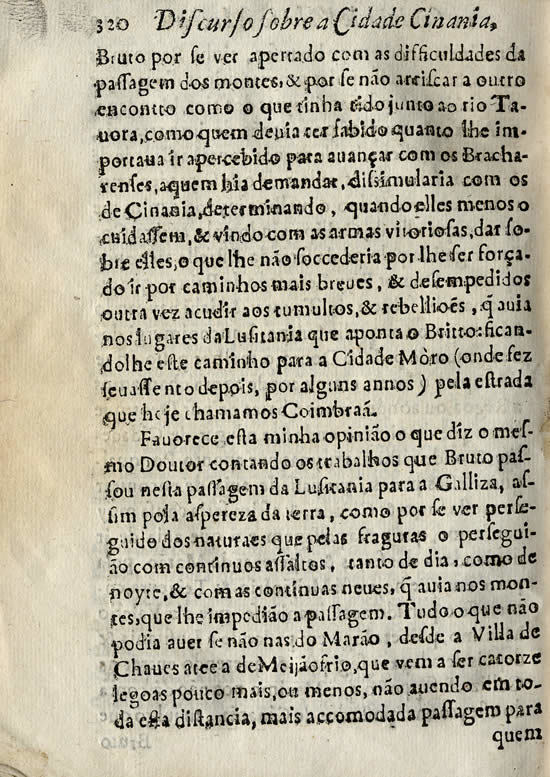 320 Discurso sobre a Cidade Cinania,
Bruto por se ver apertado com as difficuldades da
passagem dos montes, & por se não arriscar a outro
encontro como o que tinha tido junto ao rio Ta-
uora, como quem deuia ter sabido quanto lhe im-
portaua ir apercebido para auançar com os Bracha-
renses, aquem hia demandar, dissimularia com os
de Cinania, determinando, quando elles menos o
cuidassem, & vindo com as armas vitoriosas, dar so-
bre elles, o que lhe não soccederia por lhe ser força-
do ir por caminhos mais breues, & desempedidos
outra vez acudir aos tumultos, & rebellioẽs, q̃ auia
nos lugares da Lusitania que aponta o Britto: fican-
dolhe este caminho para a Cidade Môro (onde fez
seu assento depois, por alguns annos) pela estrada
que hoje chamamos Coimbraã.
Fauorece esta minha opinião o que diz o mes-
mo Doutor contando os trabalhos que Bruto pas-
sou nesta passagem da Lusitania para a Galliza, as-
sim pola aspereza da terra, como por se ver perse-
guido dos naturaes que pelas fraguras o persegui-
ão com continuos assaltos, tanto de dia, como de
noyte, & com as continuas neues, q̃ auia nos mon-
tes, que lhe impedião a passagem. Tudo o que não
podia auer se não nas do Marão, desde a Villa de
Chaues atee a de Meijãofrio, que vem a ser catorze
legoas pouco mais, ou menos, não auendo em to-
da esta distancia, mais accomodada passagem para
quem